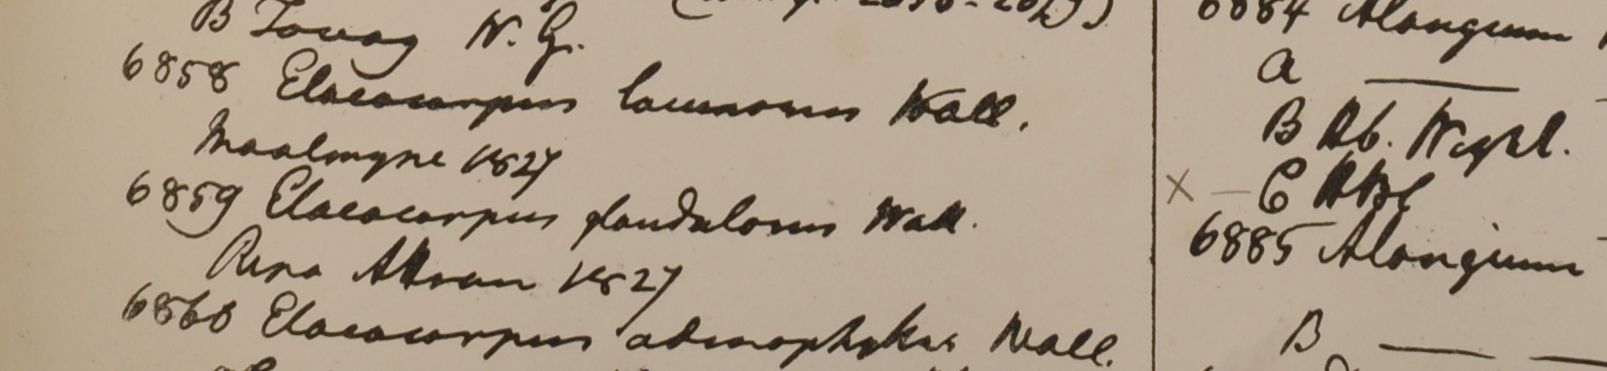 B Tavoy W. G.
6858 Elaeocarpus lacunosus Wall.
Moalmyne 1827
6859 Elaeocarpus glandulosus Wall.
Attran 1827
6860 Elaeocarpus adenophyllus Wall.
6884 Alangium
a —
B Hb. Wight.
x — C
6885 Alangium
B — —